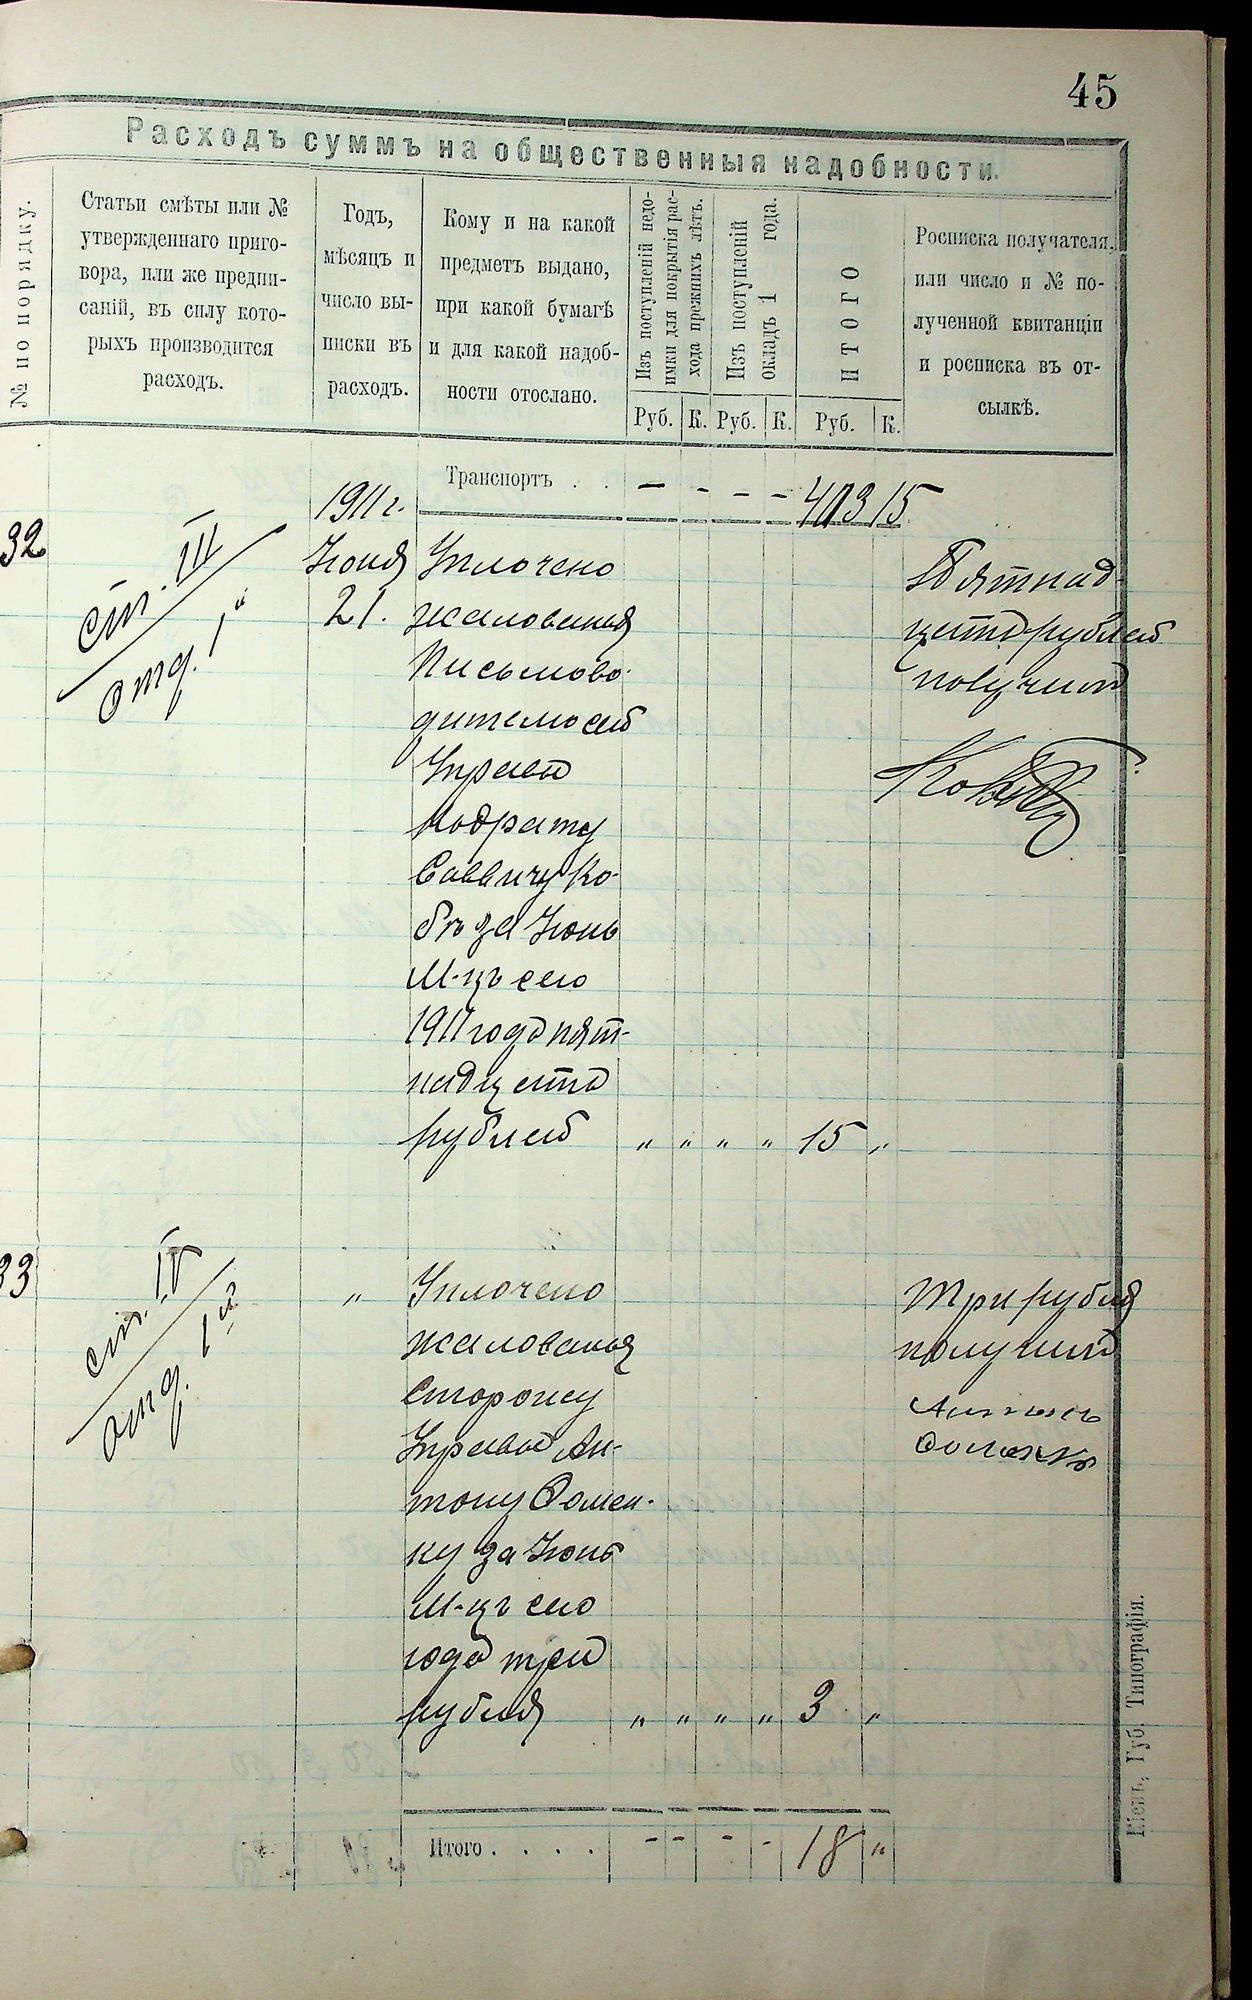 45
Расходъ суммъ на общественныя надобности.
№ по порядку.
Статьи смѣты или №
утвержденнаго приго-
вора, или же предпи-
саній, въ силу кото-
рыхъ производится
расходъ.
Годъ,
мѣсяцъ и
число вы-
писки въ
расходъ.
Кому и на какой
предметъ выдано,
при какой бумагѣ
и для какой надоб-
ности отослано.
Изъ поступленій недо-
имки для покрытія рас-
хода прежнихъ лѣтъ.
Изъ поступленій
окладъ 1 года.
ИТОГО
Росписка получателя,
или число и № по-
лученной квитанціи
и росписка въ от-
сылкѣ.
Руб. К. Руб. К. Руб. К.
Транспортъ . . — - - - 403 15
1911 г.
32
ст. III
отд. 1
Іюня
21.
Уплочено
жалованья
Письмово-
дителю сей
Управы
Кодрату
Саввичу Ко-
бъ за Іюнь
М-цъ сего
1911 года пят-
надцать
рублей " " " " 15 "
Пятнад-
цать рублей
получилъ
33
ст. IV
отд. 1й
"
Уплочено
жалованья
сторожу
Управы Ан-
тону Домен-
ку за Іюнь
М-цъ сего
года три
рубля " " " " 3 "
Три рубля
получилъ
Антонъ
Итого . . . . - - - - 18 "
Кіевъ, Губ. Типографія.